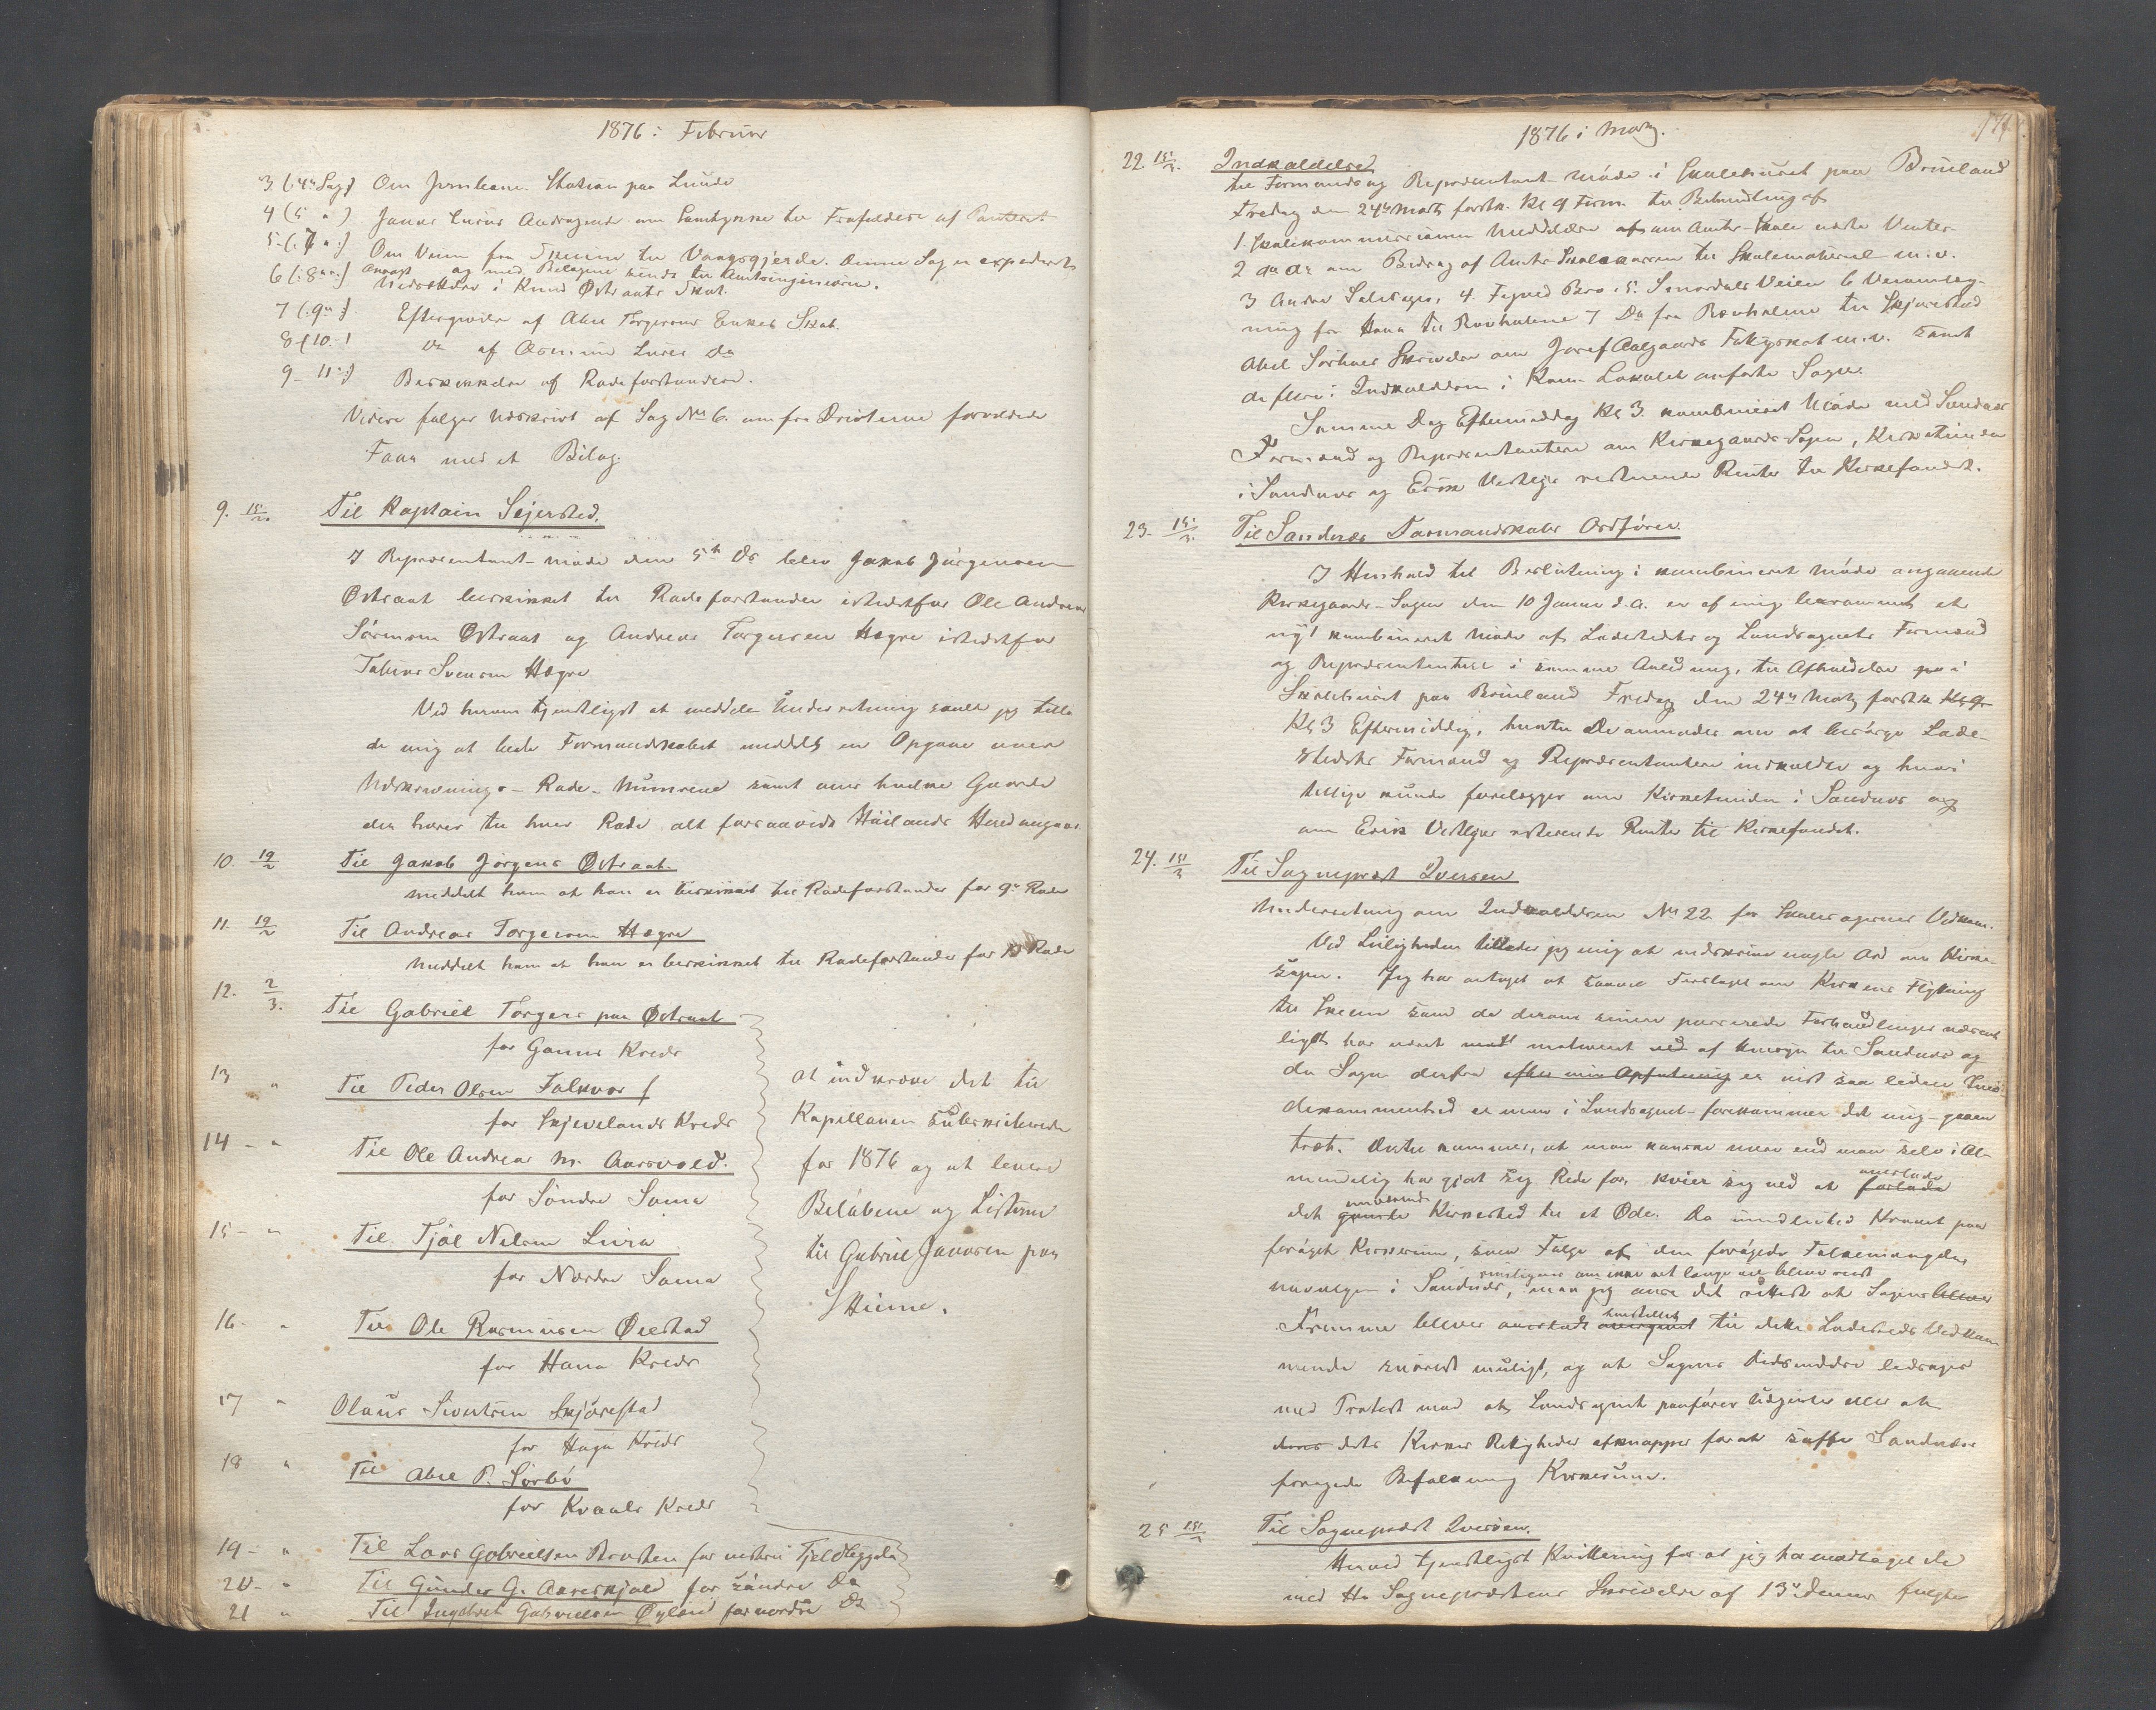 1876: Februar
3. (:4de Sag:) Om Jernbane Station paa Lunde
4 (5 " ) Jonas Luras Andragende om Samtykke til Frafaldelse af Panteret
5- (:7 " :) Om Veien fra Skeiene til Vaagsgjerde. Denne Sag er expederet
og med Bilagene sendt til Amtsingeniøren.
6 (:8 " :) Nedsættelse i Knud Østraats Skat.
7 (:9de :) Eftergivelse af Abel Torgersens Enkes Skat.
8 (10. ) Do af Asmund Luras Do
9- 11te:) Beskikkelse af Rodeforstandere.
Videre følger Udskrivt af Sag No 6. om fra Drivterne forvoldede
Faar med et Bilag.
9. 15/2. Til Kaptain Sejersted.
I Repræsentant-møde den 5te Ds blev Jakob Jørgensen
Østraat beskikket til Rodeforstander istedetfor Ole Andreas
Sørensen Østraat og Andreas Torgersen Hogre istedetfor
Tobias Svensen Hogre
Ved herom tjenstligst at meddele Underretning skulde jeg tilla
de mig at bede Formandskabet meddelt en Opgave over
Udskrivnings-Rode-Numrene samt over hvilke Gaarde
der hører til hver Rode alt forsaavidt Høilands Herred angaar.
10. 19/2 Til Jakob Jørgens Østraat.
meddelt ham at han er beskikket til Rodeforstander for 9de Rode
11. 19/2 Til Andreas Torgersen Hogre
Meddelt ham at han er beskikket til Rodeforstander for 10 Rode
12. 2/3. Til Gabriel Torgers paa Østraat
for Ganns Kreds
13 " Til Peder Olsen Folkvor
for Skjevelands Kreds
14 - " Til Ole Andreas M. Aarsvold.
for Søndre Soma
15 - " Til Tjøl Nelsen Lura
for Nordre Soma
16- " Til Ole Rasmusen Øvestad
for Hana Kreds
17 " Olaus Sivertsen Skjørestad
for Høgn Kreds
18 " Til Abel P. Sørbø
for Kvaals Kreds
at indkræve det til
Kapellanen Subskriberede
for 1876 og at levere
Beløbene og Listerne
til Gabriel Jonassen paa
Skiene.
19- " Til Lars Gabrielsen Braaten for vestre Fjeldbygda
20- " Til Gunder G. Aareskjold for søndre Do
21 " Til Ingebret Gabrielsen Øyland for nordre Do
1876 i Marts.
22. 15/3. Indkaldelse
til Formands og Repræsentant-Møde i Skolehuset paa Brueland
Fredag den 24de Marts førstk. Kl 9 Form. til Behandling af
1. Skolekommissionens Meddelelse af om Amts-Skole næste Vinter
2 da Do om Bidrag af Amts Skolekassen til Skolemateriel m.v.
3 Andre Skolesager, 4. Figved Bro. 5. Smordals Veien 6 Veiomlæg-
ning fra Hana til Rovholene 7 Do fra Rovholene til Skjørestad
Abel Sørboes Skrivelse om Josef Aalgaards Fattigskat m.v. samt
de flere i Indkaldelsen i Kom. Lokalet anførte Sager.
Samme Dag Eftermiddag Kl 3. kombineret Møde med Sandnæs
Formænd og Repræsentantere om Kirkegaards-Sagen, Kirketienden
i Sandnæs og Erik Vestlys resterende Renter til Kirkefondet.
23. 15/3. Til Sandnæs Formandskabs Ordfører.
I Henhold til Beslutning i kombineret Møde angaaende
Kirkegaards-Sagen den 10 Januar d.A. er af mig berammet et
nyt kombineret Møde af Ladestedets og Landsognets Formænd
og Repræsentantere i samme Anledning, til Afholdelse paa i
Skolehuset paa Brueland Fredag den 24de Marts førstk. Kl 9
Kl 3 Eftermiddag, hvortil De anmodes om at besørge Lade-
stedets Formænd og Repræsentantere indkaldte og hvori
tillige kunde forelægges om Kirketienden i Sandnæs og
om Erik Vestlys resterende Renter til Kirkefondet.
24. 15/3 Til Sogneprest Iversen
Underretning om Indkaldelsen No 22 for Skolesagernes Vedkom.
Ved Leiligheden tillader jeg mig at nedskrive nogle Ord om Kirke-
sagen. Jeg har antaget at saavel Forslaget om Kirkens Flytning
til Skeiene som de derom senere passerede Forhandlinger væsent
ligst har været motiveret ved af Hensyn til Sandnæs og
da Sagen derfra efter min Opfatning er vist saa liden Imø-
dekommenhed er man i Landsognet-forekommer det mig-gaaen
træt. Dertil kommer, at man kanske mere end man selv i Al-
mindelig har gjort sig Rede for, kvier sig ved at forlade overlade
det gamle nuværende Kirkested til et Øde. Da imidlertid Kravet paa
forøget Kirkerum, som Følge af den forøgede Folkemængde,
rimeligvis om ikke ret længe vil blive reist
navnligen i Sandnæs, maa jeg anse det rettest at Sagens bliver
Fremme bliver overladt overgivet henstillet til dette Ladesteds Vedkom
mende snarest muligt, og at Sagens Udsendelse ledsages
med Protest mod at Landsognet paaføres Udgivter eller at
deres dets Kirkes Rettigheder afknappes for at skaffe Sandnæs
forøgede Befolkning Kirkerum.
25 15/3 Til Sogneprest Iversen.
Herved tjenstligst Kvittering for at jeg har modtaget de
med Hr Sogneprestens Skrivelse af 13de dennes fulgte